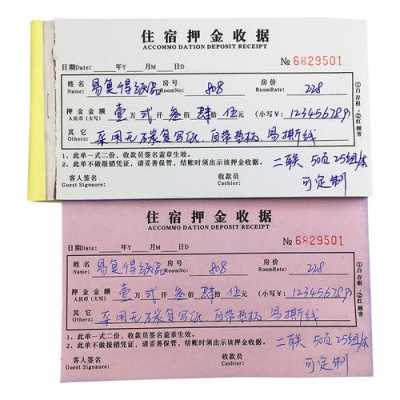 住宿押金收据
ACCOMMO DATION DEPOSIT RECEIPT
日期Date: 年Y 月M 日D № 6829501
姓名 易复得纸品 房号 808 房价 228
Name: Room RoomRate:
押金金额 壹万弍仟叁佰肆拾伍元 (小写¥: 123456789)
人民币(大写)
其它 采用无碳复写纸, 自带垫板 易撕线
Others:
1、此单一式二份,收款员签名盖章生效。
2、此单不做报销凭证,请妥善保管,结账时须出示该押金收据。
二联 50页25组/本
可定制
客人签名 收款员
Guest Signature: Cashier:
①白存根
②红顾客
住宿押金收据
ACCOMMO DATION DEPOSIT RECEIPT
日期Date: 年Y 月M 日D № 6829501
姓名 易复得纸品 房号 808 房价 228
Name: Room RoomRate:
押金金额 壹万弍仟叁佰肆拾伍元 (小写¥: 123456789)
人民币(大写)
其它 采用无碳复写纸, 自带垫板 易撕线
Others:
1、此单一式二份,收款员签名盖章生效。
2、此单不做报销凭证,请妥善保管,结账时须出示该押金收据。
二联 50页25组/本
可定制
客人签名 收款员
Guest Signature: Cashier:
①白存根
②红顾客